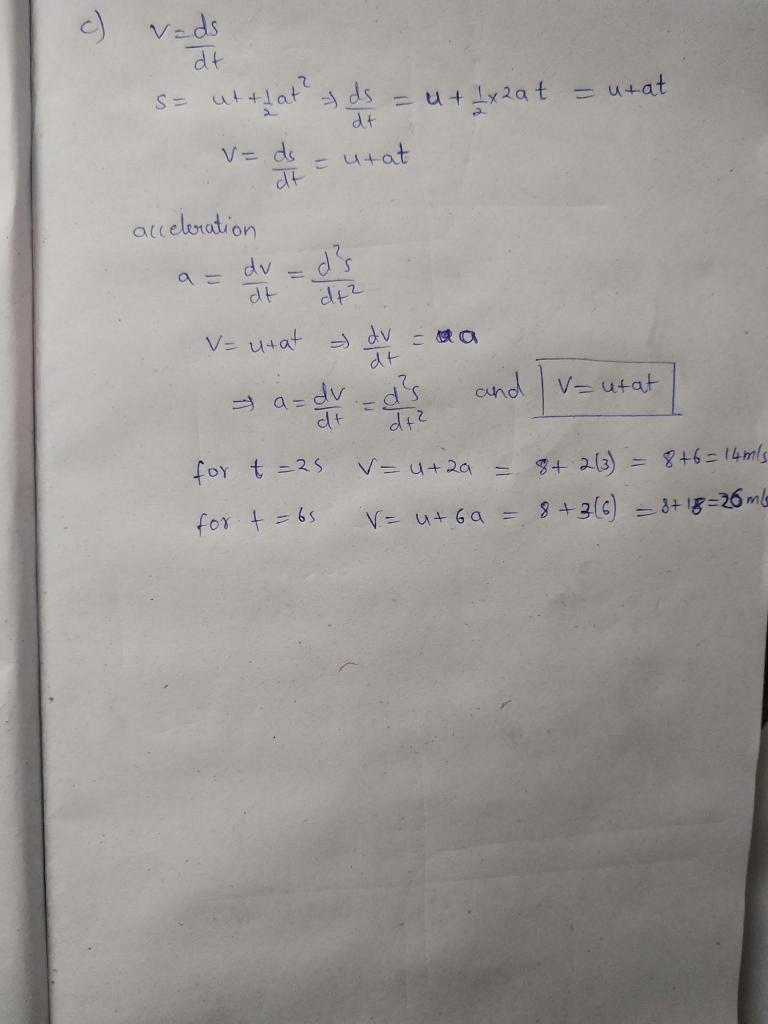 c) V = ds/dt
s = ut + 1/2 at² ⇒ ds/dt = u + 1/2 x 2at = u+at
V = ds/dt = u+at
acceleration
a = dv/dt = d²s/dt²
V = u+at ⇒ dv/dt = a
⇒ a = dv/dt = d²s/dt² and V = u+at
for t = 2s V = u+2a = 8+ 2(3) = 8+6 = 14m/s
for t = 6s V = u+6a = 8+3(6) = 8+18 = 26 m/s